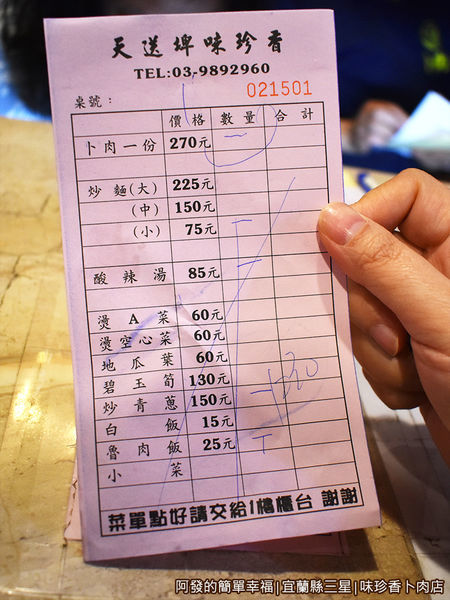 天送埤味珍香
TEL:03-9892960
桌號： 021501
價格 數量 合計
卜肉一份 270元 一
炒麵(大) 225元
(中) 150元
(小) 75元
酸辣湯 85元
燙A菜 60元
燙空心菜 60元
地瓜葉 60元
碧玉筍 130元
炒青蔥 150元
白飯 15元
魯肉飯 25元
小菜
菜單點好請交給1樓櫃台 謝謝
阿發的簡單幸福|宜蘭縣三星|味珍香卜肉店